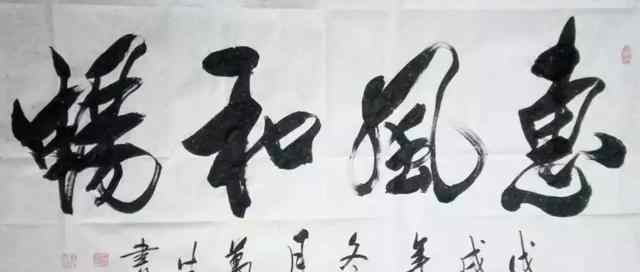 惠風和暢
戊戌年冬月萬書